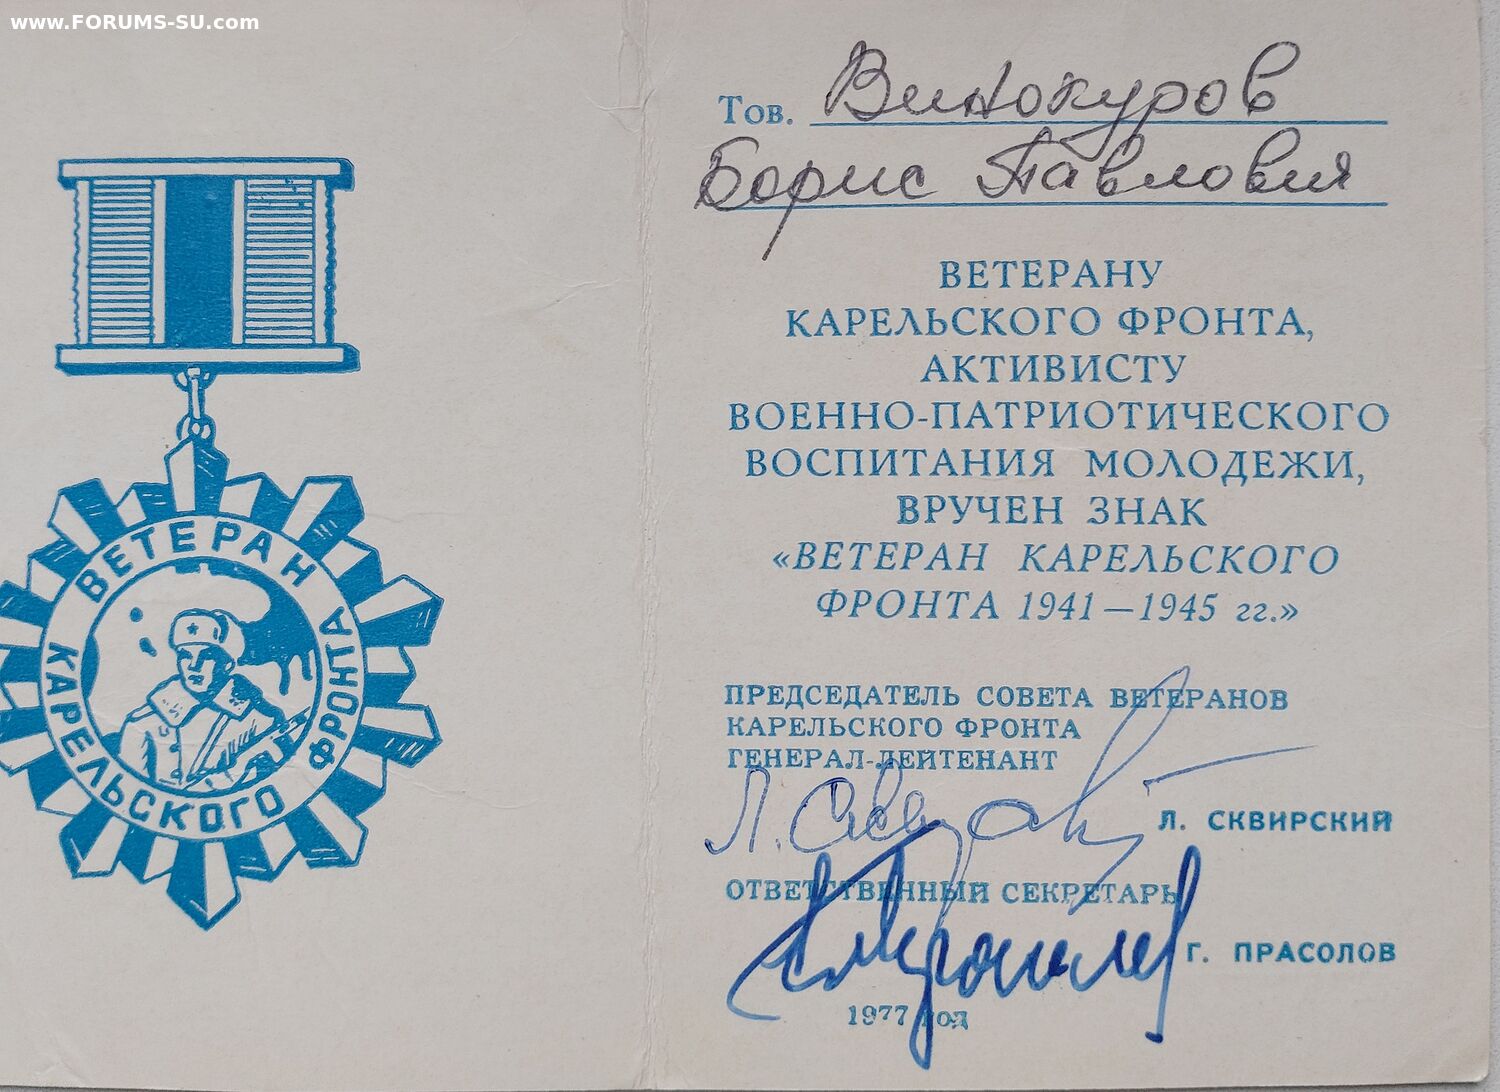 www.FORUMS-SU.com
ВЕТЕРАН
КАРЕЛЬСКОГО ФРОНТА
Тов. Винокуров
Борис Павлович
ВЕТЕРАНУ
КАРЕЛЬСКОГО ФРОНТА,
АКТИВИСТУ
ВОЕННО-ПАТРИОТИЧЕСКОГО
ВОСПИТАНИЯ МОЛОДЕЖИ,
ВРУЧЕН ЗНАК
«ВЕТЕРАН КАРЕЛЬСКОГО
ФРОНТА 1941—1945 гг.»
ПРЕДСЕДАТЕЛЬ СОВЕТА ВЕТЕРАНОВ
КАРЕЛЬСКОГО ФРОНТА
ГЕНЕРАЛ-ЛЕЙТЕНАНТ
Л. СКВИРСКИЙ
ОТВЕТСТВЕННЫЙ СЕКРЕТАРЬ
Г. ПРАСОЛОВ
1977 год